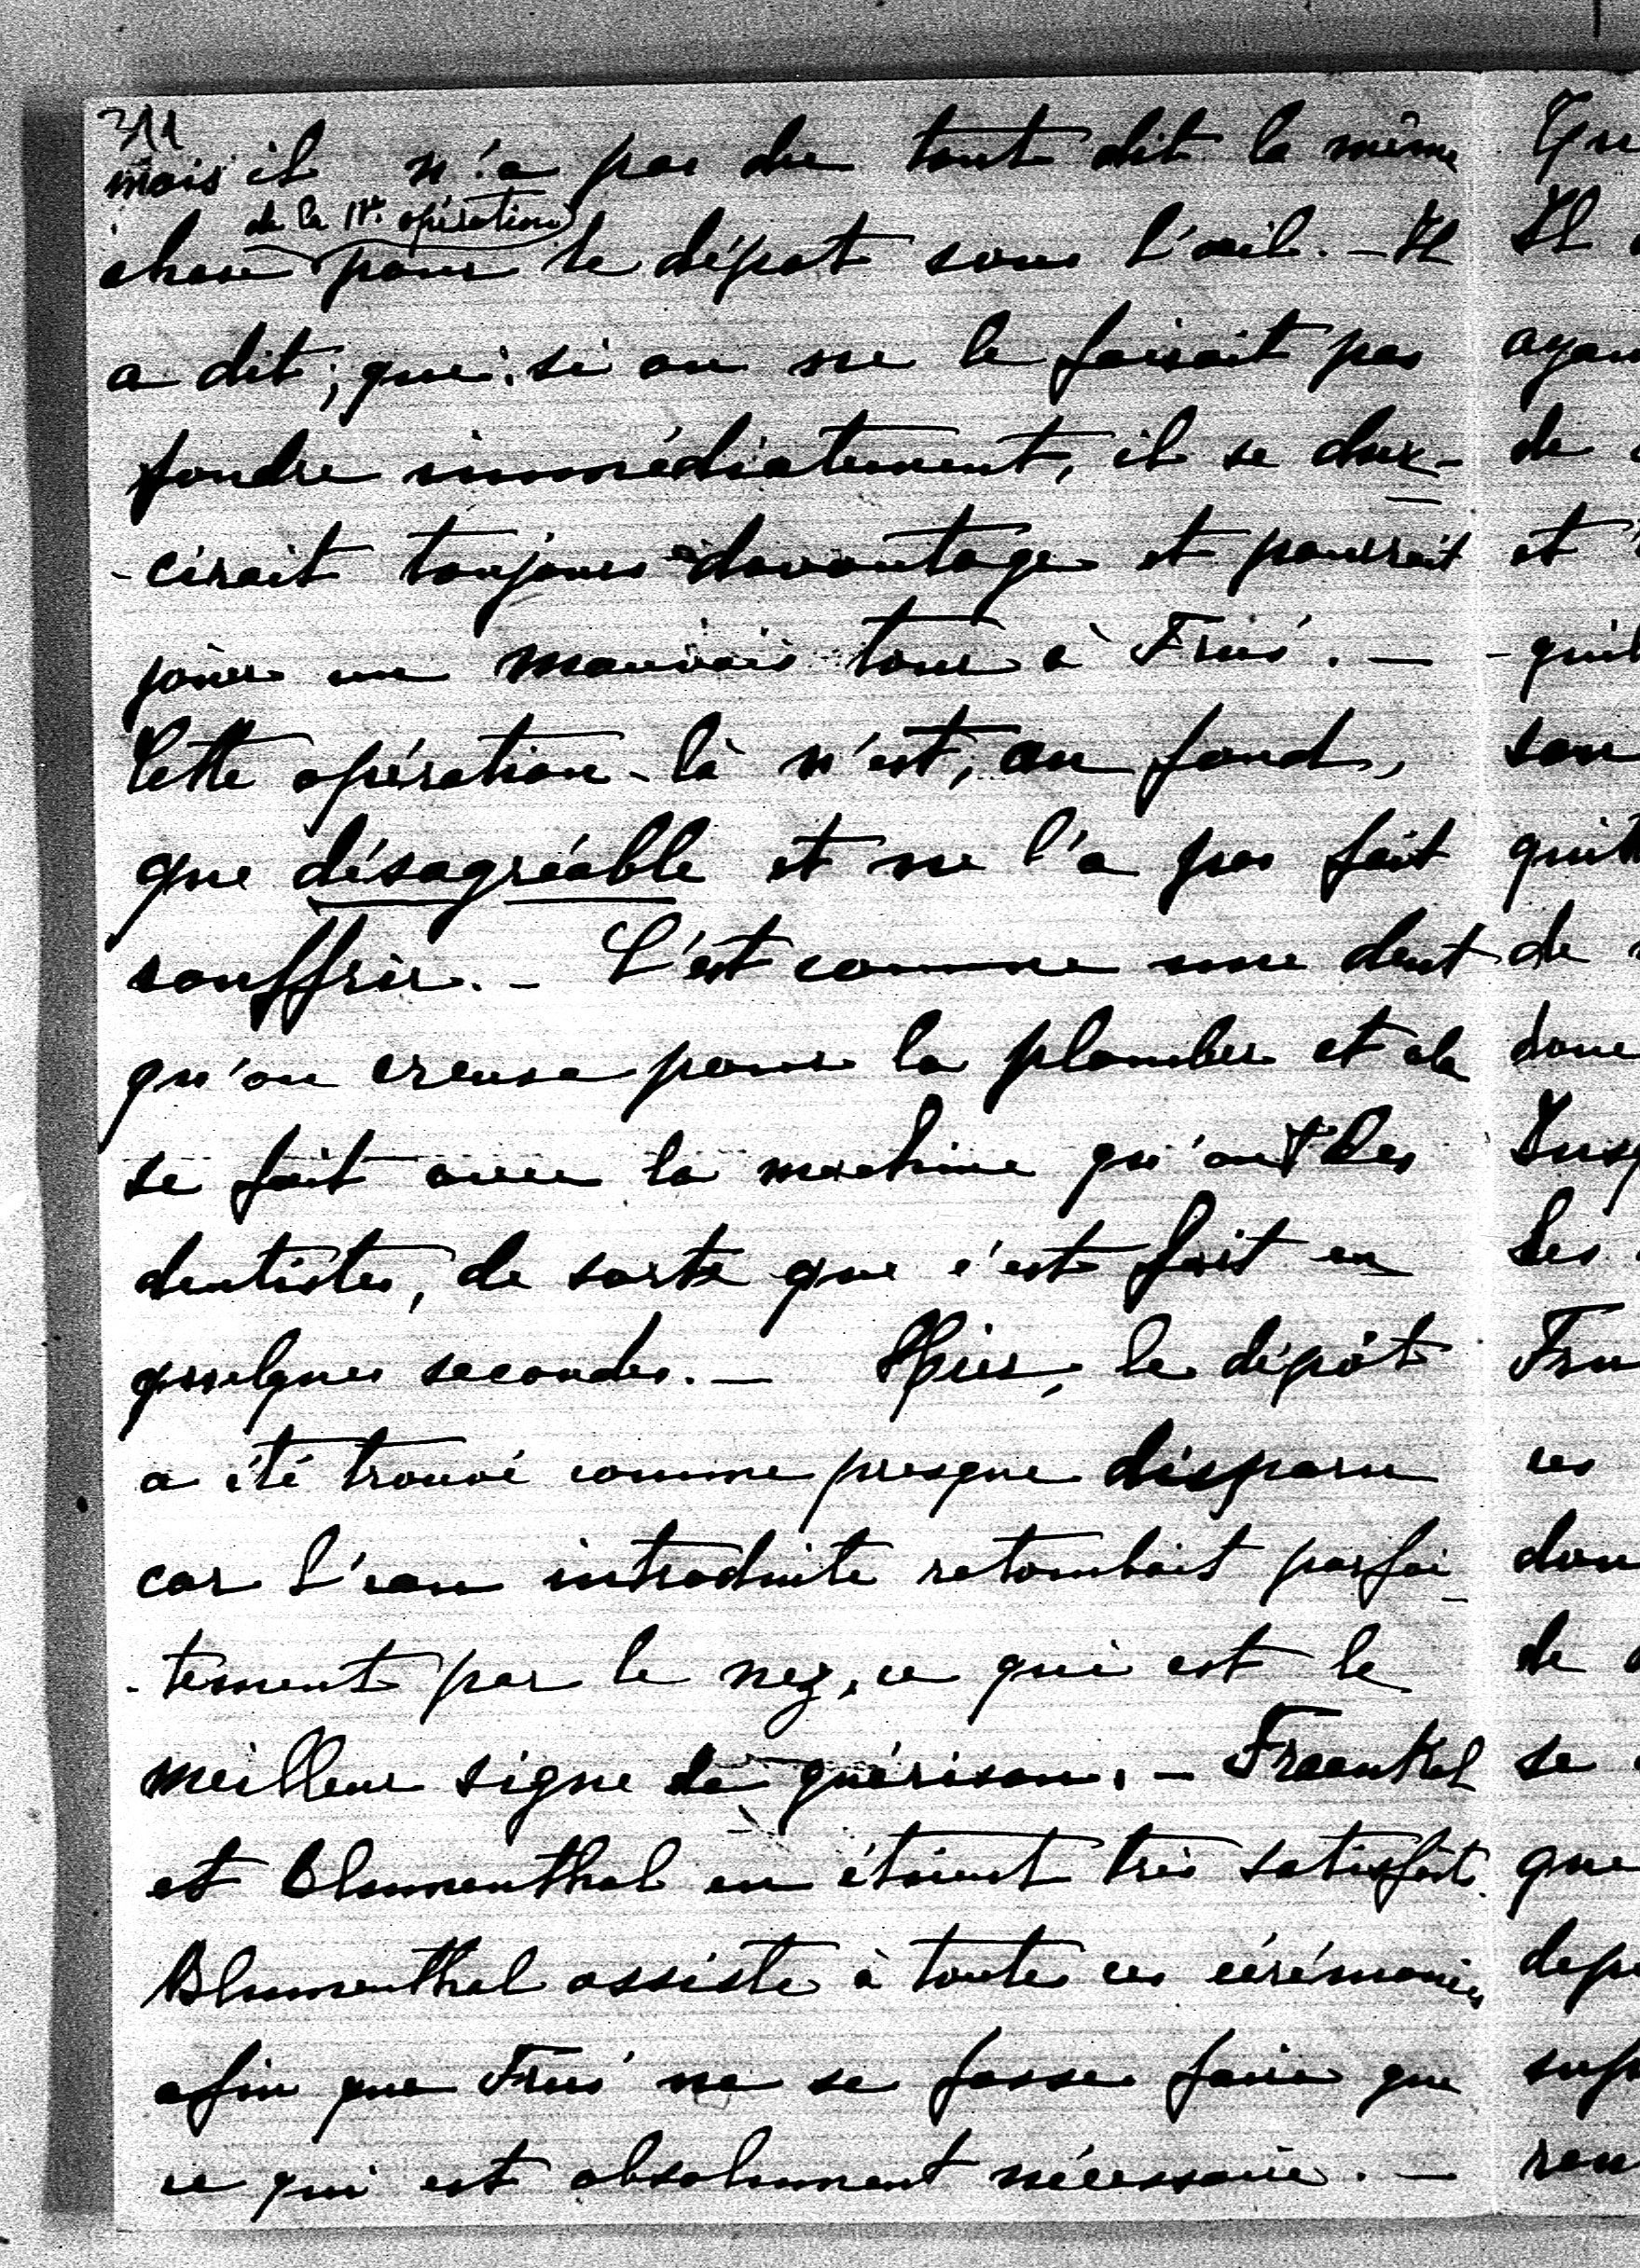 311
mais il n'a pas du tout dit la même
de la 1re opération
chose pour le dépot sous l'œil. — Il
a dit, que si on ne le faisait pas
fondre immédiatement, il se dur-
-cirait toujours davantage et pourrait
jouer un mauvais tour à Fru's. —
Cette opération-là n'est, au fond,
que désagréable et ne l'a pas fait
souffrir. — C'est comme une dent
qu'on creuse pour la plomber et cela
se fait avec la machine qu'ont les
dentistes, de sorte que c'est fait en
quelques secondes. — Hier, le dépôt
a été trouvé comme presque disparu
car l'eau introduite retombait parfai-
-tement par le nez, ce qui est le
meilleur signe de guérison. — Fraenkel
et Blumenthal en étaient très satisfaits.
Blumenthal assiste à toutes ces cérémonies
afin que Fru's ne se fasse faire que
ce qui est absolument nécessaire. —
Il
ayan
de
et
-qu'il
son
quitt
de
donc
Jusq
Les
Fru
ces
don
de
se
que
depu